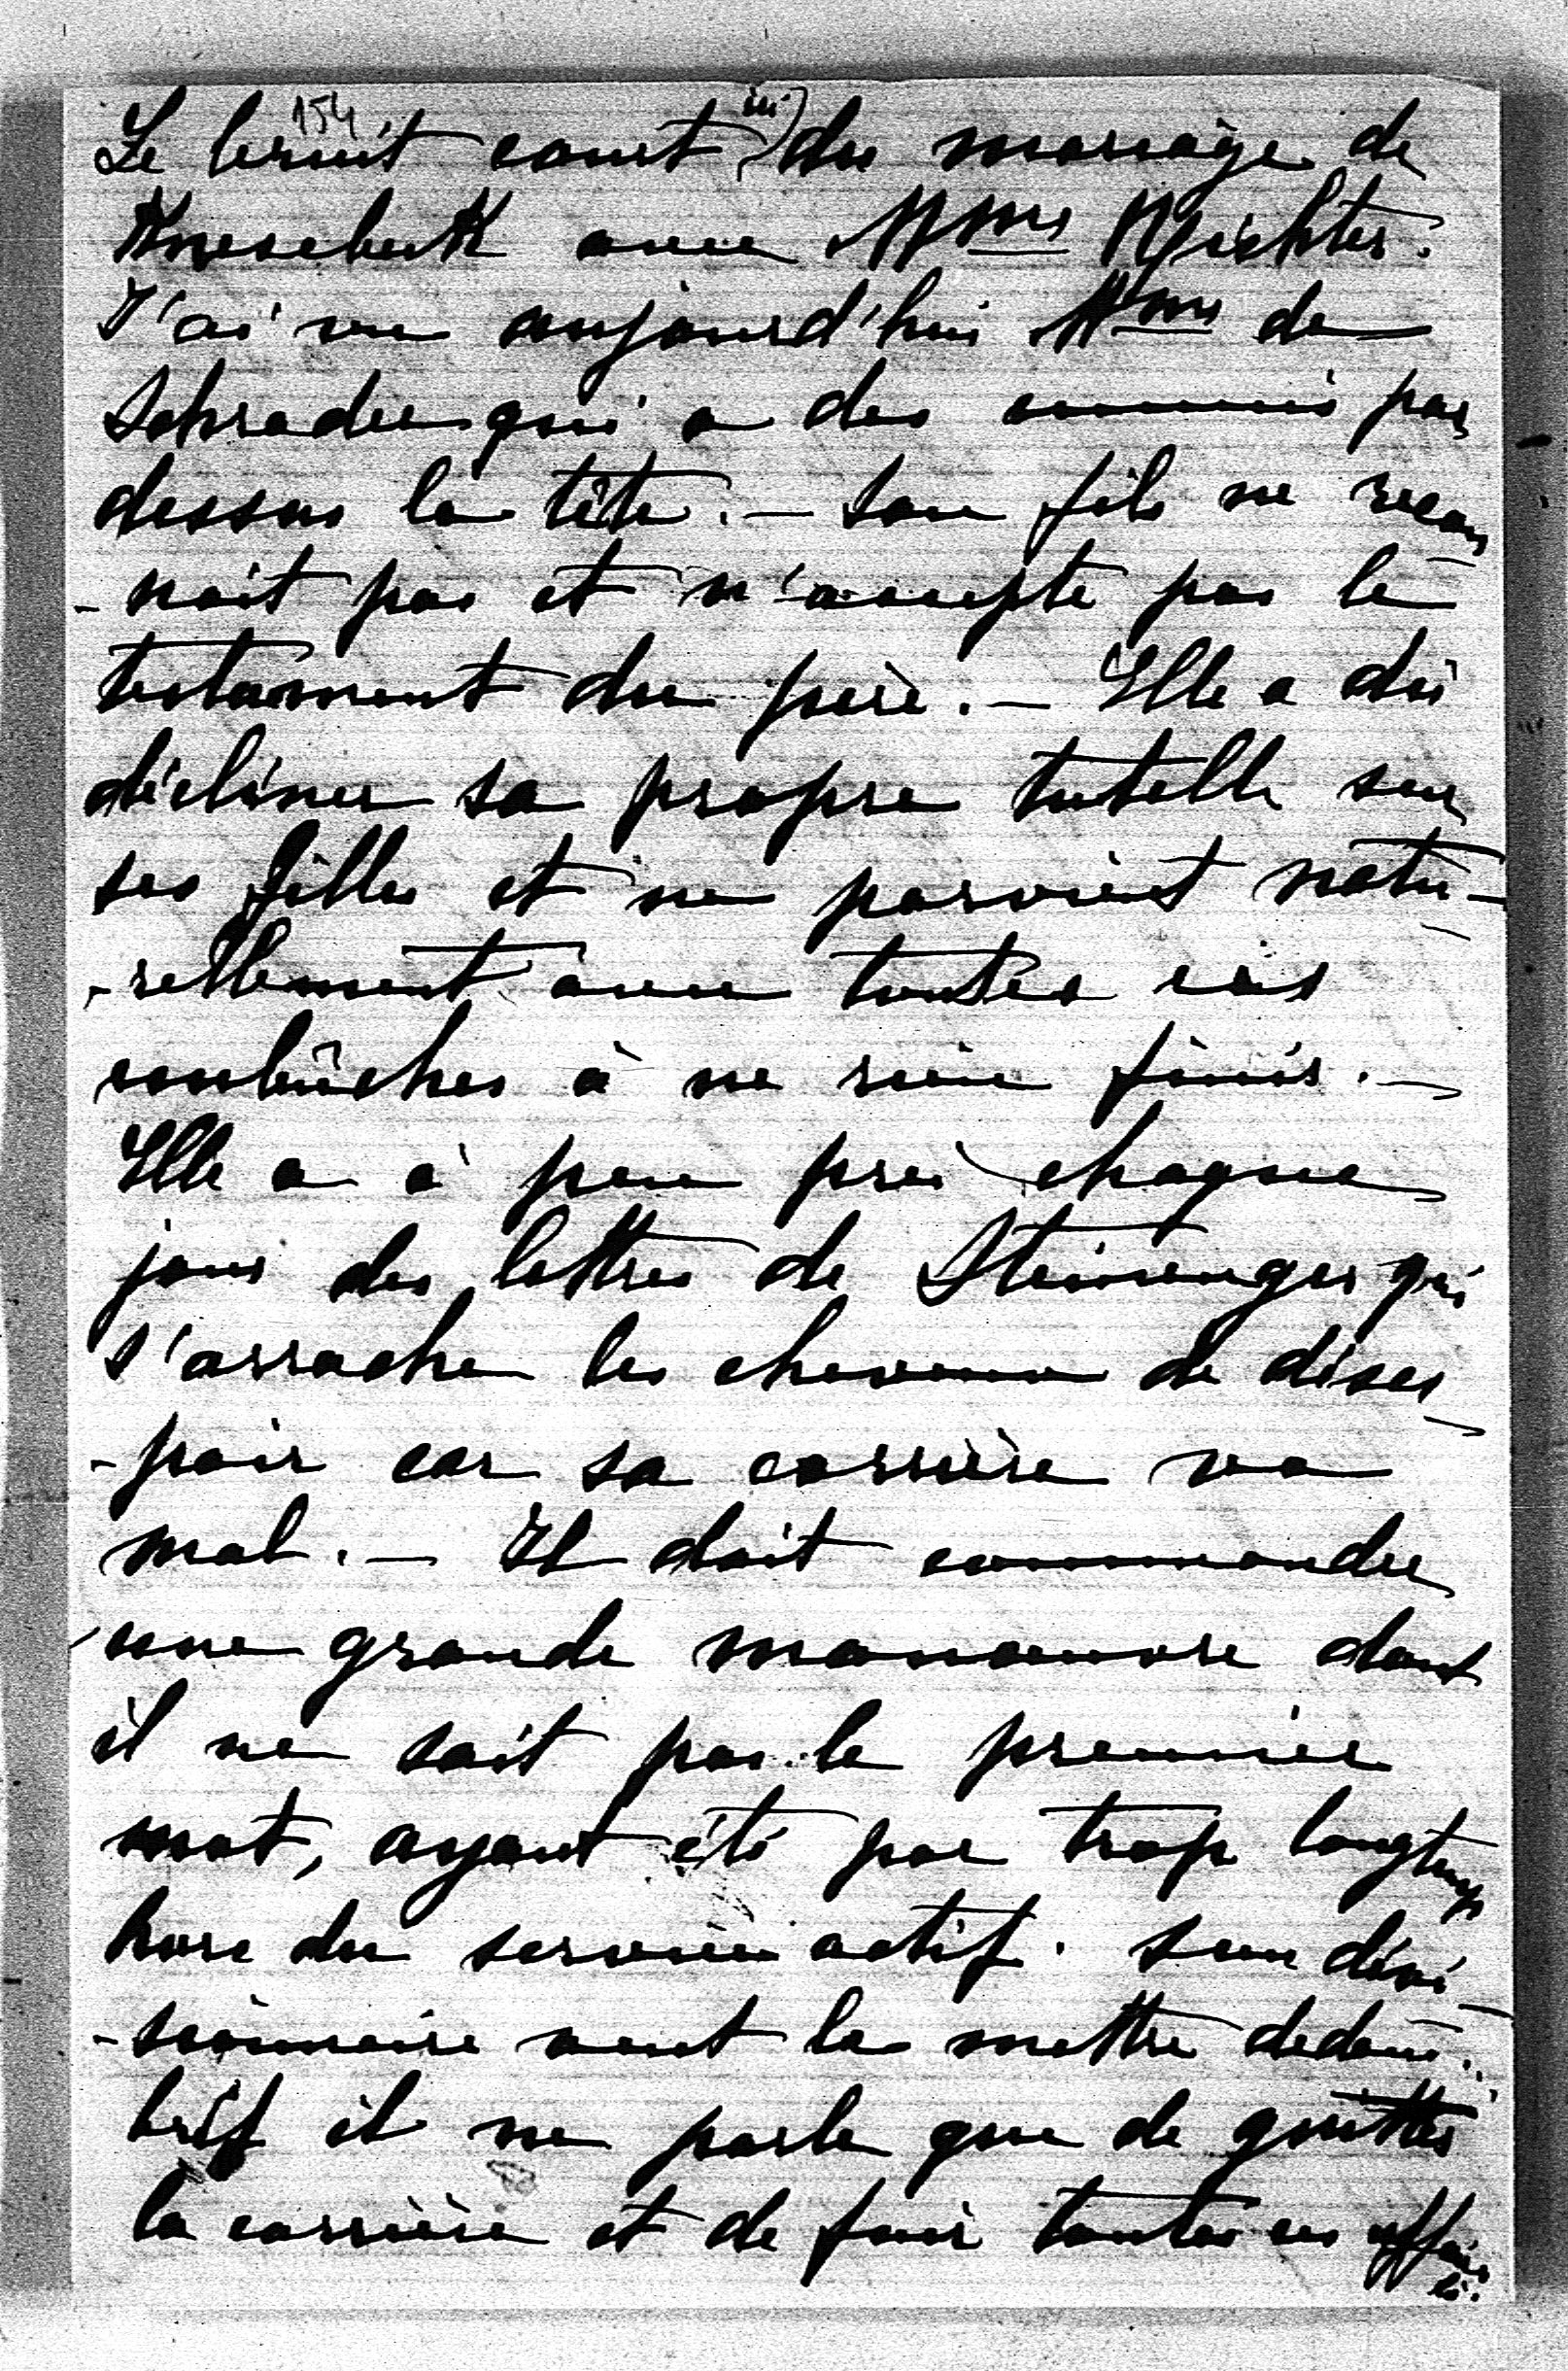 154
Le bruit court ici du mariage de
Knesebeck avec Mme Richter.
J'ai vu aujourd'hui Mme de
Schrader qui a des ennuis par
dessus la tête. — Son fils ne recon
-nait pas et n'accepte pas le
testament du père. — Elle a dû
décliner sa propre tutelle sur
ses filles et ne parvient natu-
-rellement avec toutes ces
embûches à ne rien finir. —
Elle a à peu près chaque
jour des lettres de Steininger qui
s'arrache les cheveux de déses
-poir car sa carrière va
mal. — Il doit commander
une grande manoeuvre dont
il ne sait pas le premier
mot, ayant été par trop longtemps
hors du service actif. Son divi
-sionnaire veut le mettre dedans.
bref il ne parle que de quitter
la carrière et de fuir toutes ces affaires
là.